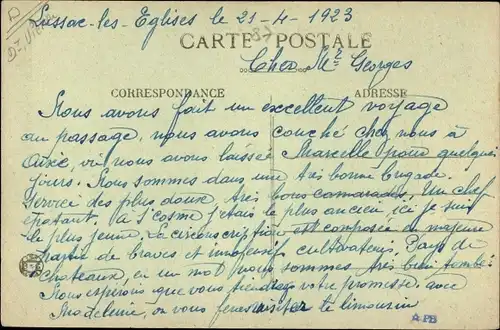 Lussac-les-Eglises le 21-4-1923
CARTE POSTALE
Cher Mr Georges
CORRESPONDANCE ADRESSE
Nous avons fait un excellent voyage
au passage, nous avons couché chez nous à
Aixe, où nous avons laissée Marcelle pour quelques
jours. Nous sommes dans une très bonne brigade.
Service des plus doux, très bons camarades. Un chef
épatant. À j'étais le plus ancien, ici je suis
le plus jeune. La circonscription est composée en majeure
partie de braves et inoffensifs cultivateurs. Pays de
chateaux, en un mot nous sommes très bien tombé.
Nous espérons que vous tiendrez votre promesse. avec
Madeleine, ou vous ferez visiter le limousin
APB